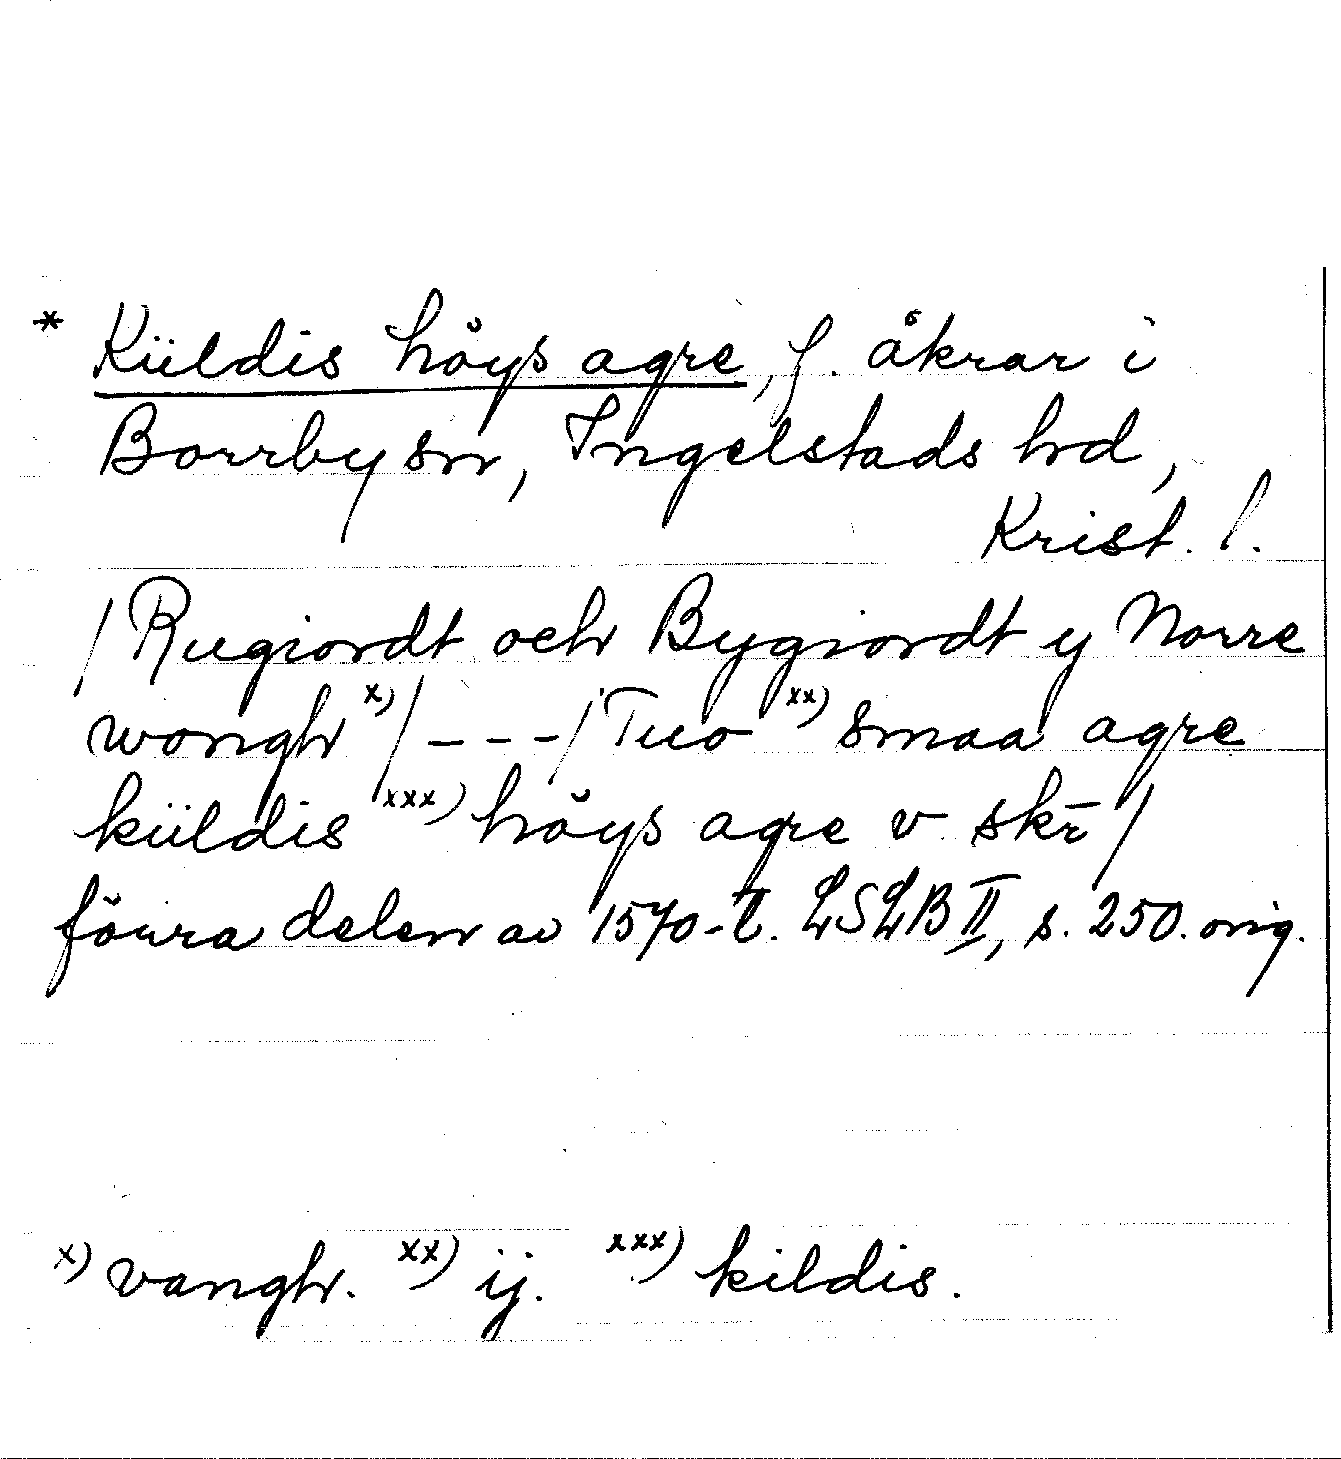 * Kiildis höys agre, f. åkrar i
Borrby sn, Ingelstads hd,
Krist. l.
/Rugiordt och Bygiordt y Norre
wongh x)/ - - - /Tuo xx) smaa agre
kiildis xxx) höys agre v skr̄/
förra delen av 1570-t. LSLB II, s. 250. orig.
x) vangh. xx) ij. xxx) kildis.